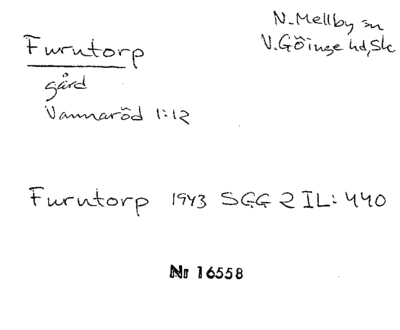 N. Mellby sn
V. Göinge hd, Sk
Furutorp
gård
Vannaröd 1:12
Furutorp 1943 SGG 2 IL: 440
Nr 16558